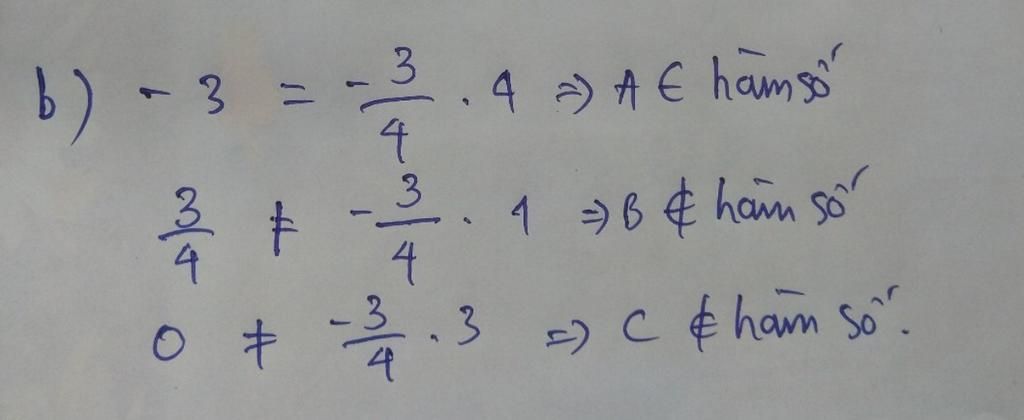 b) - 3 = - 3/4 . 4 => A ∈ hàm số
3/4 ≠ - 3/4 . 1 => B ∉ hàm số
0 ≠ -3/4 . 3 => C ∉ hàm số.